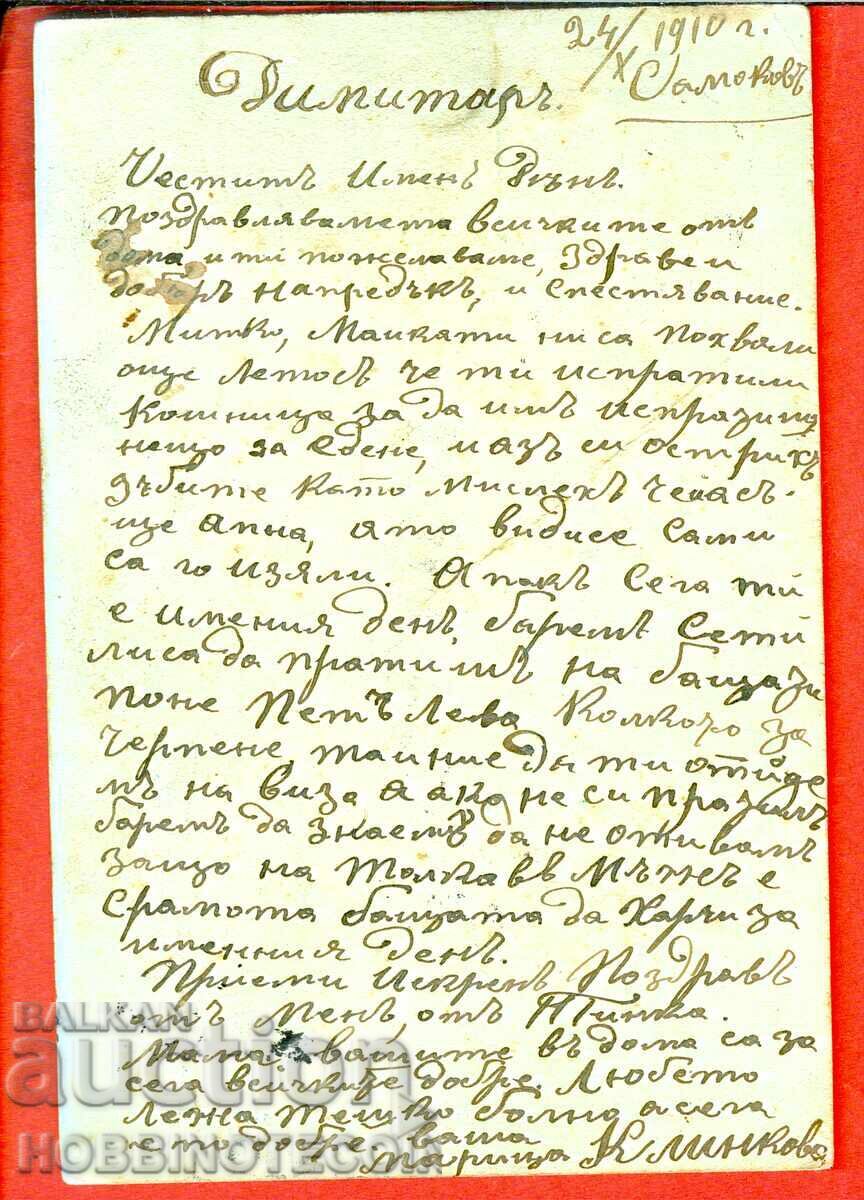 24/X 1910 г.
Самоковъ
Димитаръ.
Честитъ Именъ Денъ.
поздравлявамета всичките отъ
дома, и ти пожелаваме, здраве и
добъръ напредъкъ, и спестявание.
Митко, Маикати ни са похвали
още летосъ че ти испратили
кошница за да имъ испразниш
нещо за едене, и азъ си острихъ
зъбите като мислехъ че и азъ
ще апна, ято видисе сами
са го изяли. А пакъ сега ти
е имения денъ, баремъ сети
лиса да пратишъ на баща зи
поне Петъ Лева колкото за
черпене, та и ние да ти отиде
мъ на виза а ако не си пратилъ
баремъ да знаемъ да не отивамъ
защо на толкавъ Мъжъ е
срамота бащата да харчи за
именния денъ.
Приеми Искренъ Поздравъ
отъ Менъ, отъ Тинка.
Мама вашите въ дома са за
сега всичките добре. Любето
лежа тешко болно а сега
е по добре ваша
Марица Клинкова
BALKAN
auction
HOBBINOTE.COM